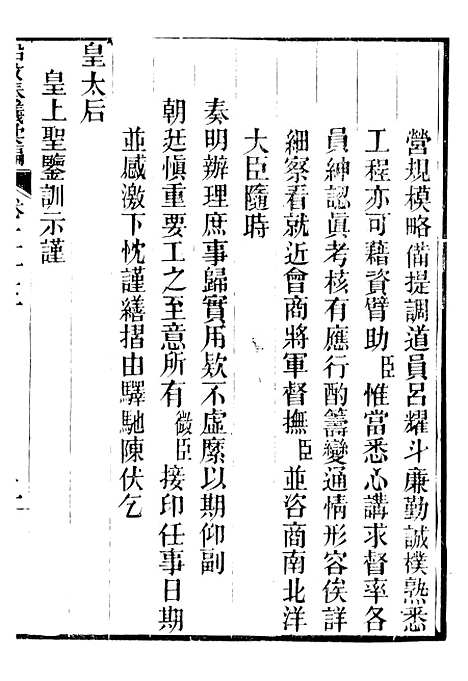 營規模略備提調道員呂耀斗廉勤誠樸熟悉
工程亦可藉資臂助臣惟當悉心講求督率各
員紳認眞考核有應行酌籌變通情形容俟詳
細察看就近會商將軍督撫臣並咨商南北洋
大臣隨時
奏明辦理庶事歸實用欵不虛糜以期仰副
朝廷愼重要工之至意所有微臣接印任事日期
並感激下忱謹繕摺由驛馳陳伏乞
皇太后
皇上聖鑒訓示謹
船政奏議彙編